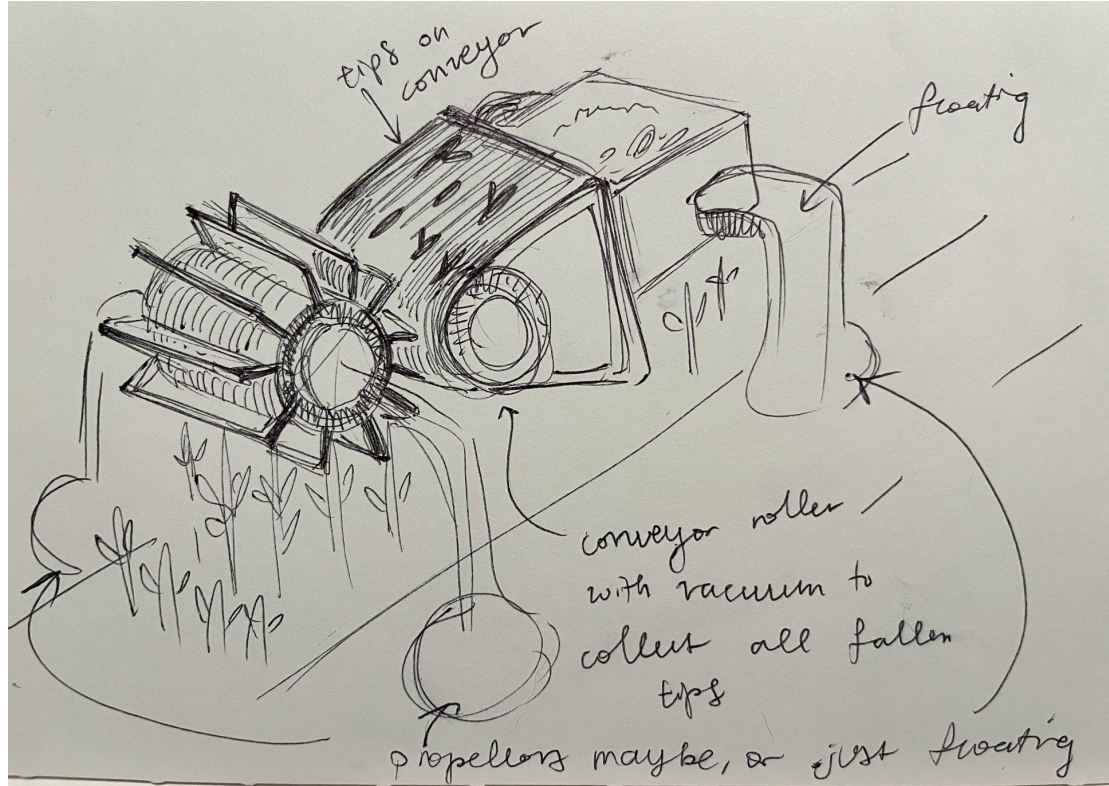 tips on
conveyor
floating
conveyor roller
with vacuum to
collect all fallen
tips
propellers maybe, or just floating